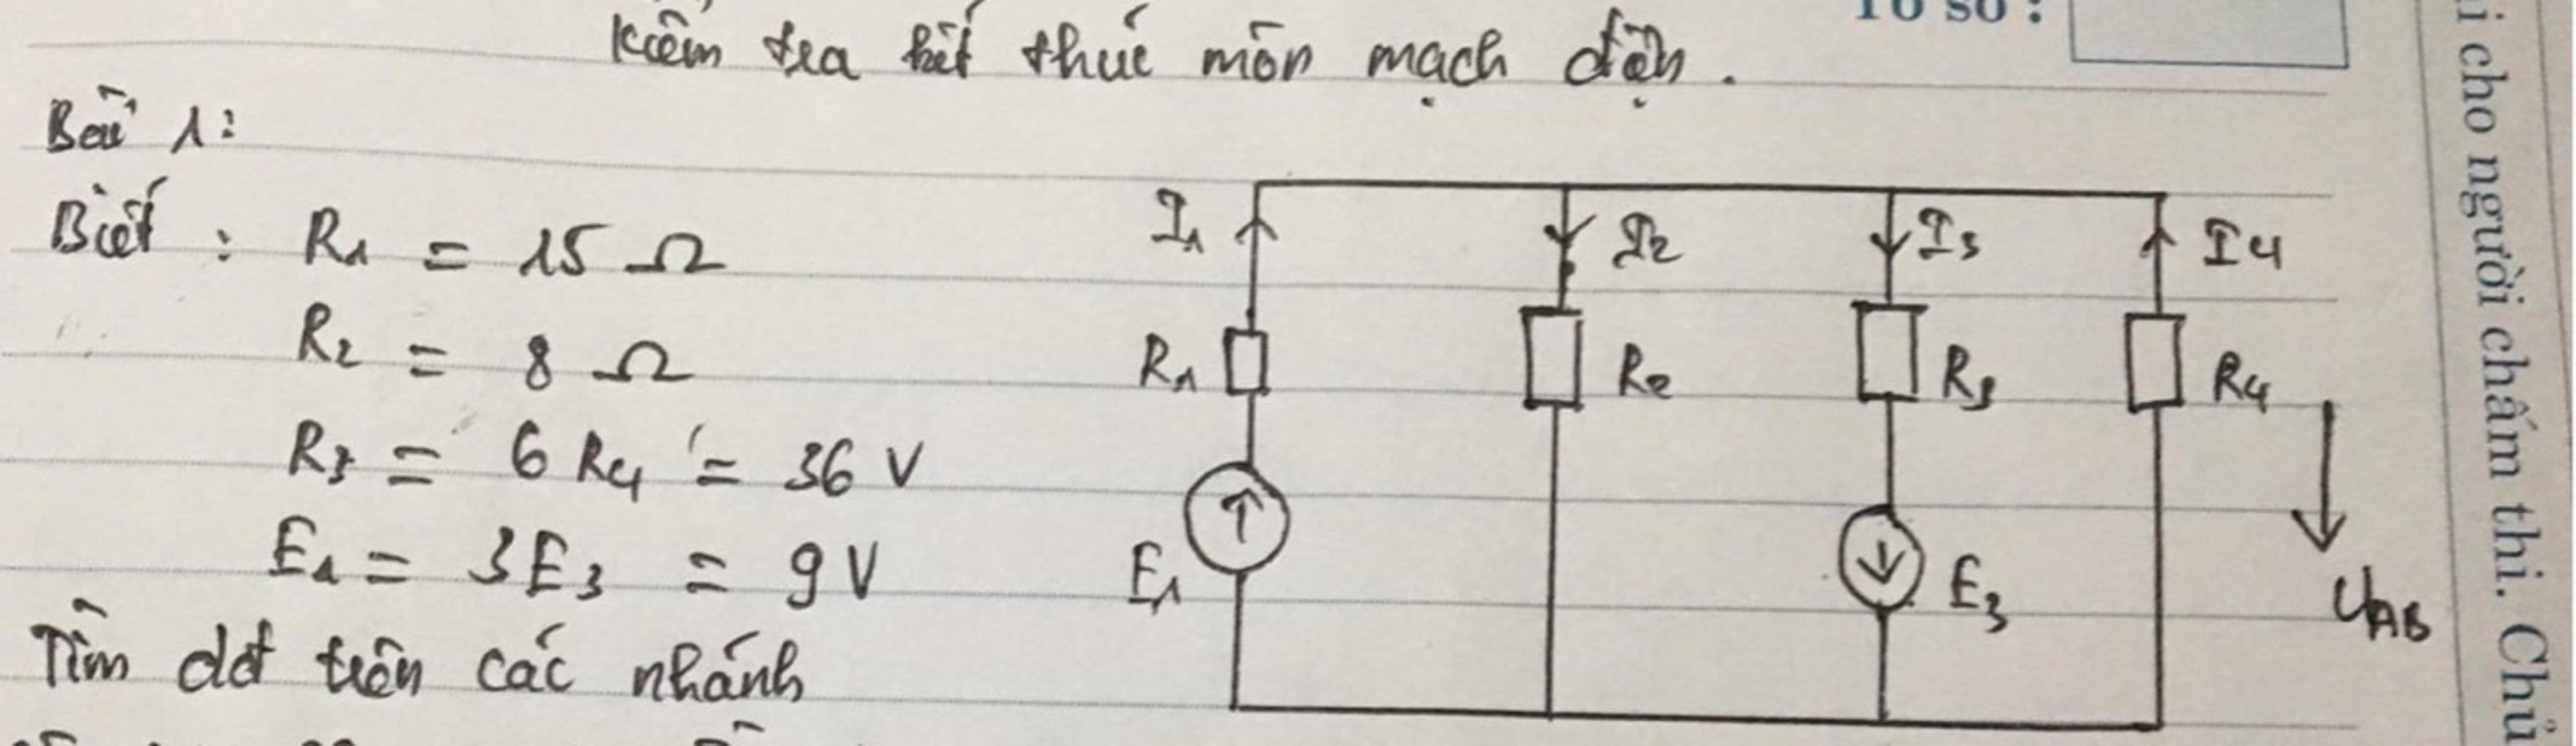 Tờ số :
Kiểm tra kết thúc môn mạch điện.
Bài 1:
Biết : R1 = 15 Ω
R2 = 8 Ω
R3 = 6 R4 = 36 V
E1 = 3E3 = 9V
Tìm dđ trên các nhánh
I1
I2
I3
I4
R1
R2
R3
R4
E1
E3
UAB
i cho người chấm thi. Chủ